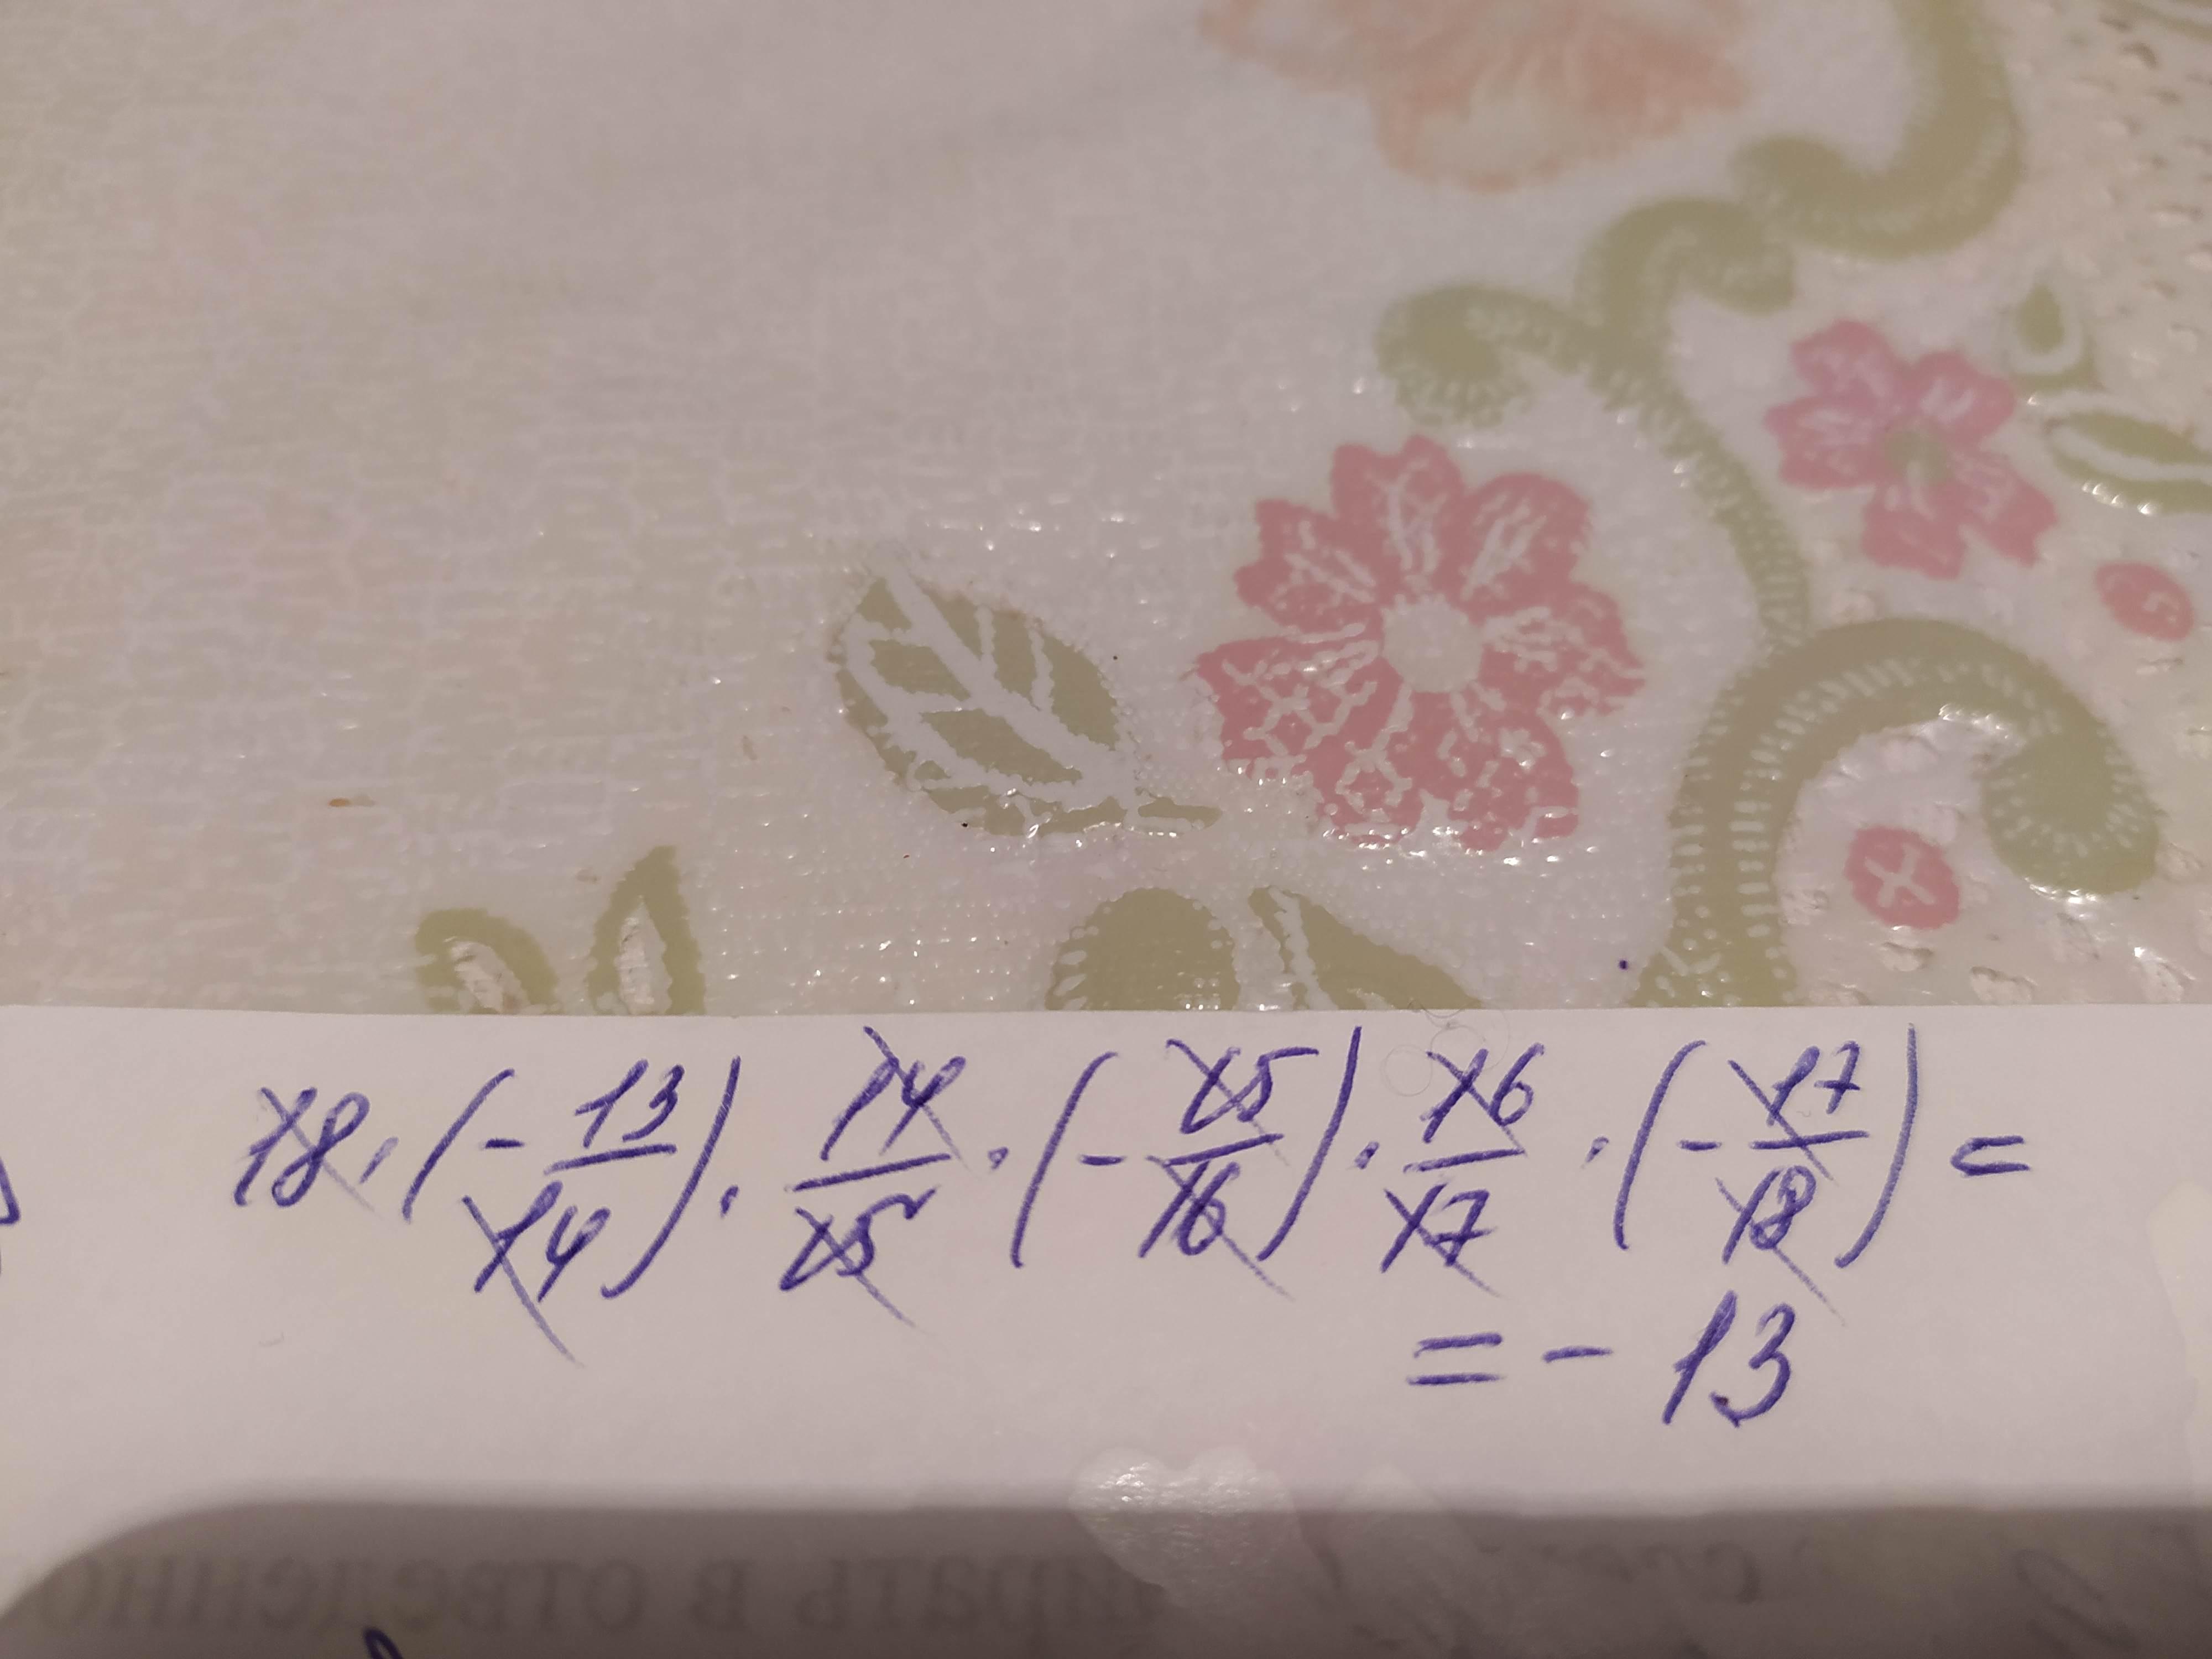 18 · (- 13/14) · 14/15 · (- 15/16) · 16/17 · (- 17/18) =
= - 13